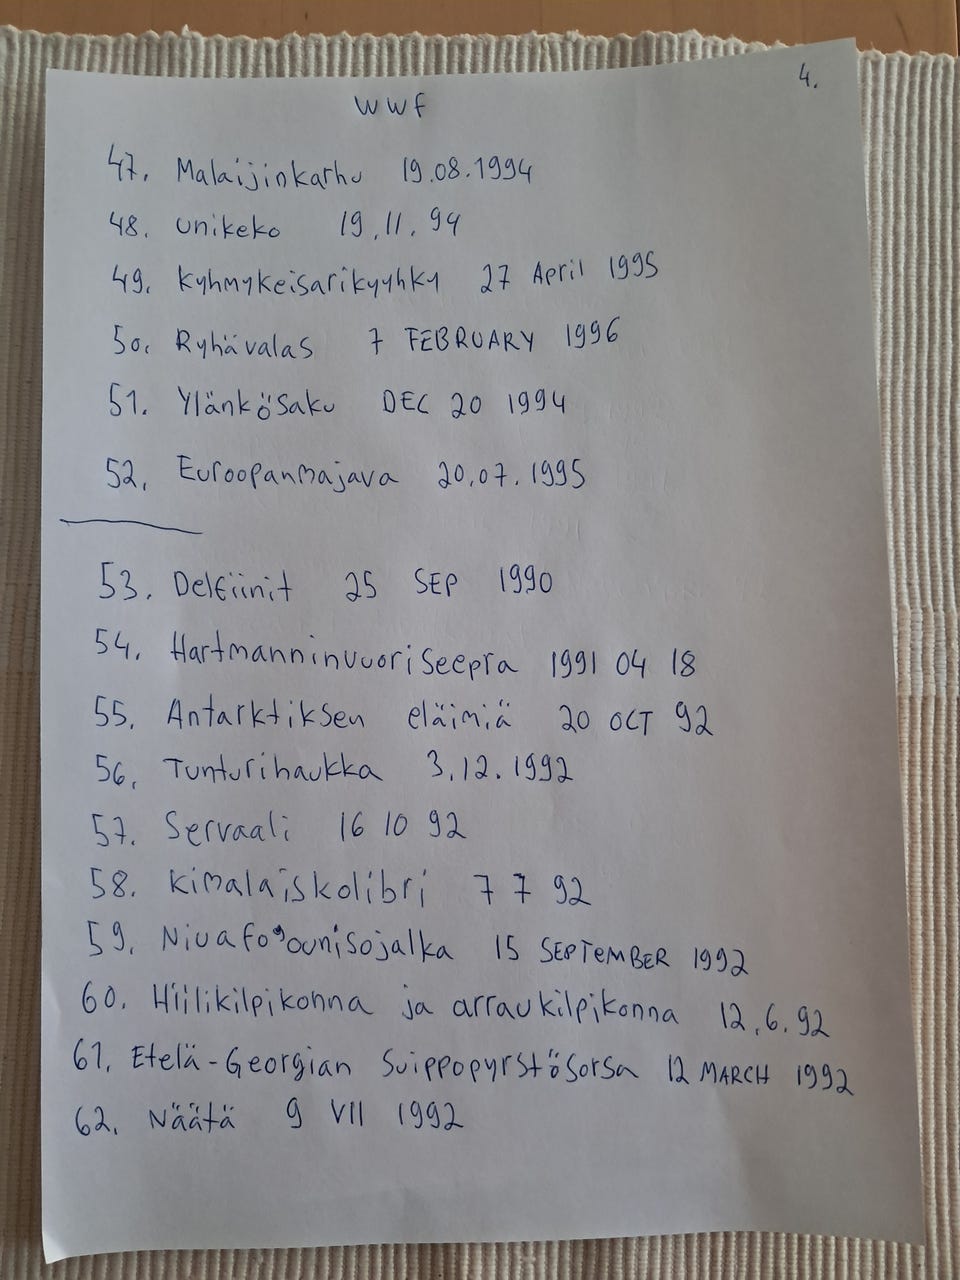 4.
WWF
47. Malaijinkarhu 19.08.1994
48. unikeko 19.11.94
49. Kyhmykeisarikyyhky 27 April 1995
50. Ryhävalas 7 FEBRUARY 1996
51. Ylänkösaku DEC 20 1994
52. Euroopanmajava 20.07.1995
53. Delfiinit 25 SEP 1990
54. Hartmanninvuoriseepra 1991 04 18
55. Antarktiksen eläimiä 20 OCT 92
56. Tunturihaukka 3.12.1992
57. Servaali 16 10 92
58. Kimalaiskolibri 7 7 92
59. Niuafo'ounisojalka 15 SEPTEMBER 1992
60. Hiilikilpikonna ja arraukilpikonna 12.6.92
61. Etelä-Georgian Suippopyrstösorsa 12 MARCH 1992
62. Näätä 9 VII 1992